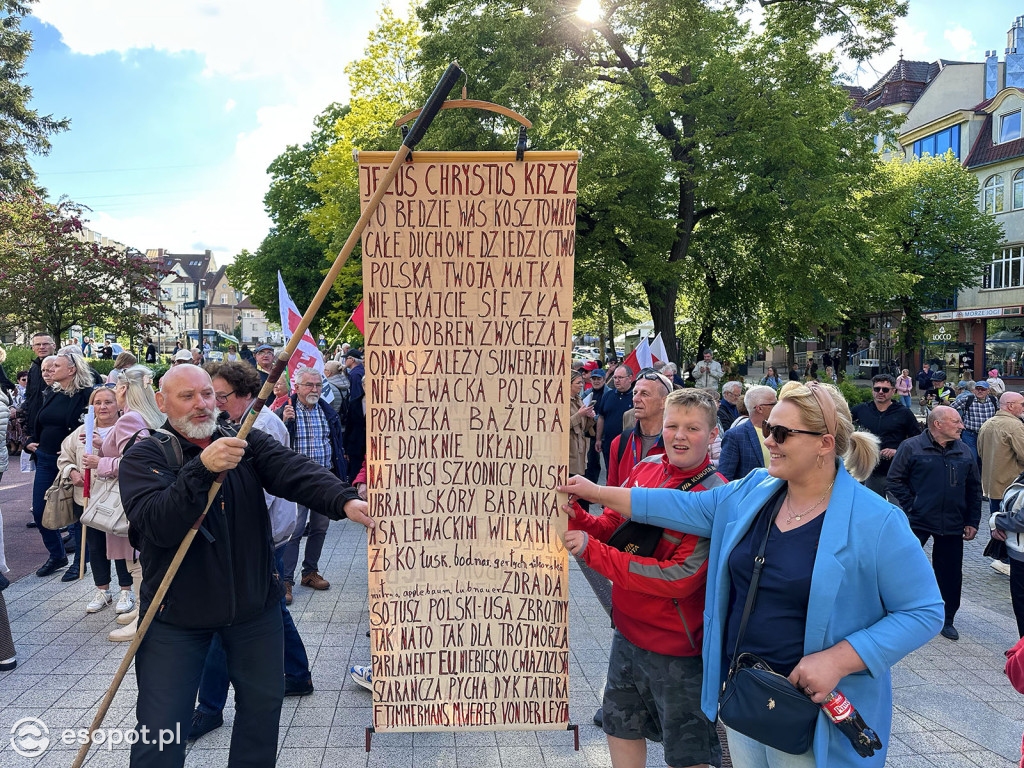 JEZUS CHRYSTUS KRZYZ
TO BĘDZIE WAS KOSZTOWAŁO
CAŁE DUCHOWE DZIEDZICTWO
POLSKA TWOJA MATKA
NIE LĘKAJCIE SIĘ ZŁA
ZŁO DOBREM ZWYCIĘŻAĆ
OD NAS ZALEŻY SUWERENNA
NIE LEWACKA POLSKA
PORASZKA BAŻURA
NIE DOMKNIE UKŁADU
NAJWIEKSI SZKODNICY POLSKI
UBRALI SKÓRY BARANKA
A SĄ LEWACKIMI WILKAMI
ZBKO tusk. bodnar
ZDRADA
SOJUSZ POLSKI-USA ZBROJNY
TAK NATO TAK DLA TRÓJMORZA
PARLAMENT EU NIEBIESKO GWIAZDZISTA
SZARAŃCZA PYCHA DYKTATURA
F. TIMMERMANS M.WEBER VON DER LEYEN
MORZE JOGI
LOCCO
KUBOTA
esopot.pl